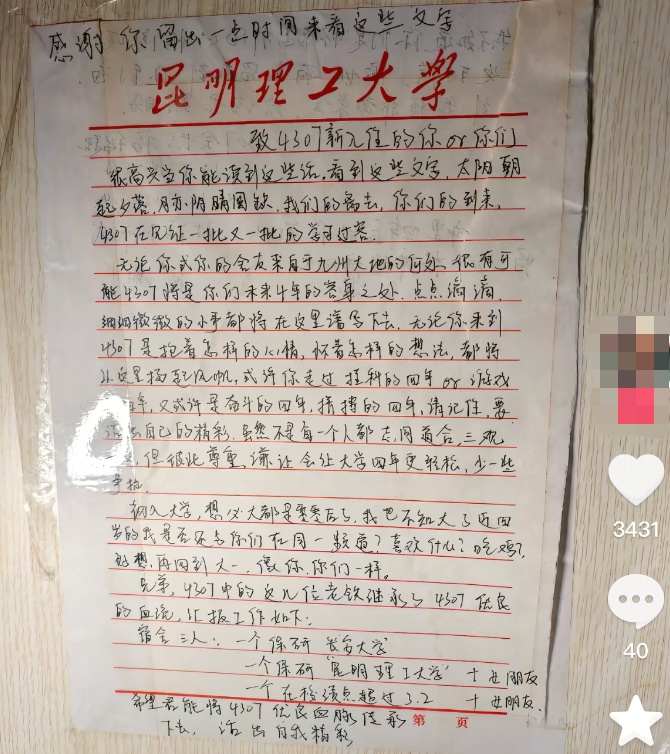 感谢你留出一点时间来看这些文字
昆明理工大学
致4307新入住的你or你们
很高兴当你能读到这些话,看到这些文字,太阳朝
起夕落,月亦阴晴圆缺,我们的离去,你们的到来,
4307在见证一批又一批的学子过客.
无论你或你的舍友来自于九州大地的何处,很有可
能4307将是你们未来4年的容身之处.点点滴滴,
细细微微的小事都将在这里谱写下去.无论你来到
4307是抱着怎样的心情,怀着怎样的想法,都将
从这里扬起风帆,或许你走过挂科的四年or游戏
四年,又或许是奋斗的四年,拼搏的四年,请记住,要
活出自己的精彩.虽然不是每一个人都志同道合,三观
但彼此尊重,谦让会让大学四年更轻松,少一些
争执.
初入大学,想必大都是零零后了,我也不知大了近四
岁的我是否还与你们在同一频道?喜欢什么?吃鸡?
好想再回到大一,像你,你们一样。
兄弟,4307中的这几位老铁继承了4307优良
的血统,汇报工作如下:
宿舍三人:一个保研 长安大学
一个保研"昆明理工大学" + 女朋友
一个在校绩点超过3.2 + 女朋友.
希望君能将4307优良血脉传承
第 页
下去,活出自我精彩
3431
40